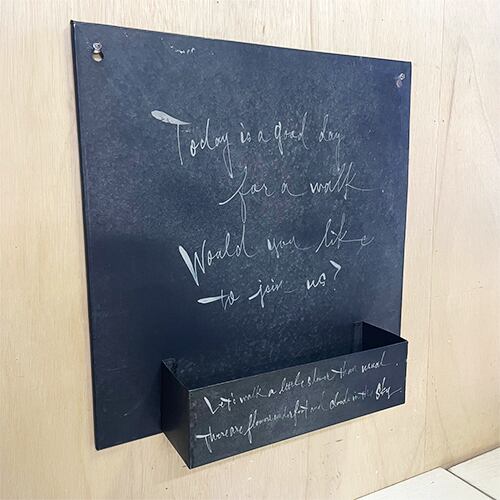 Today is a good day
for a walk
Would you like
to join us?
Let's walk a little slower than usual.
There are flowers underfoot and clouds in the sky.